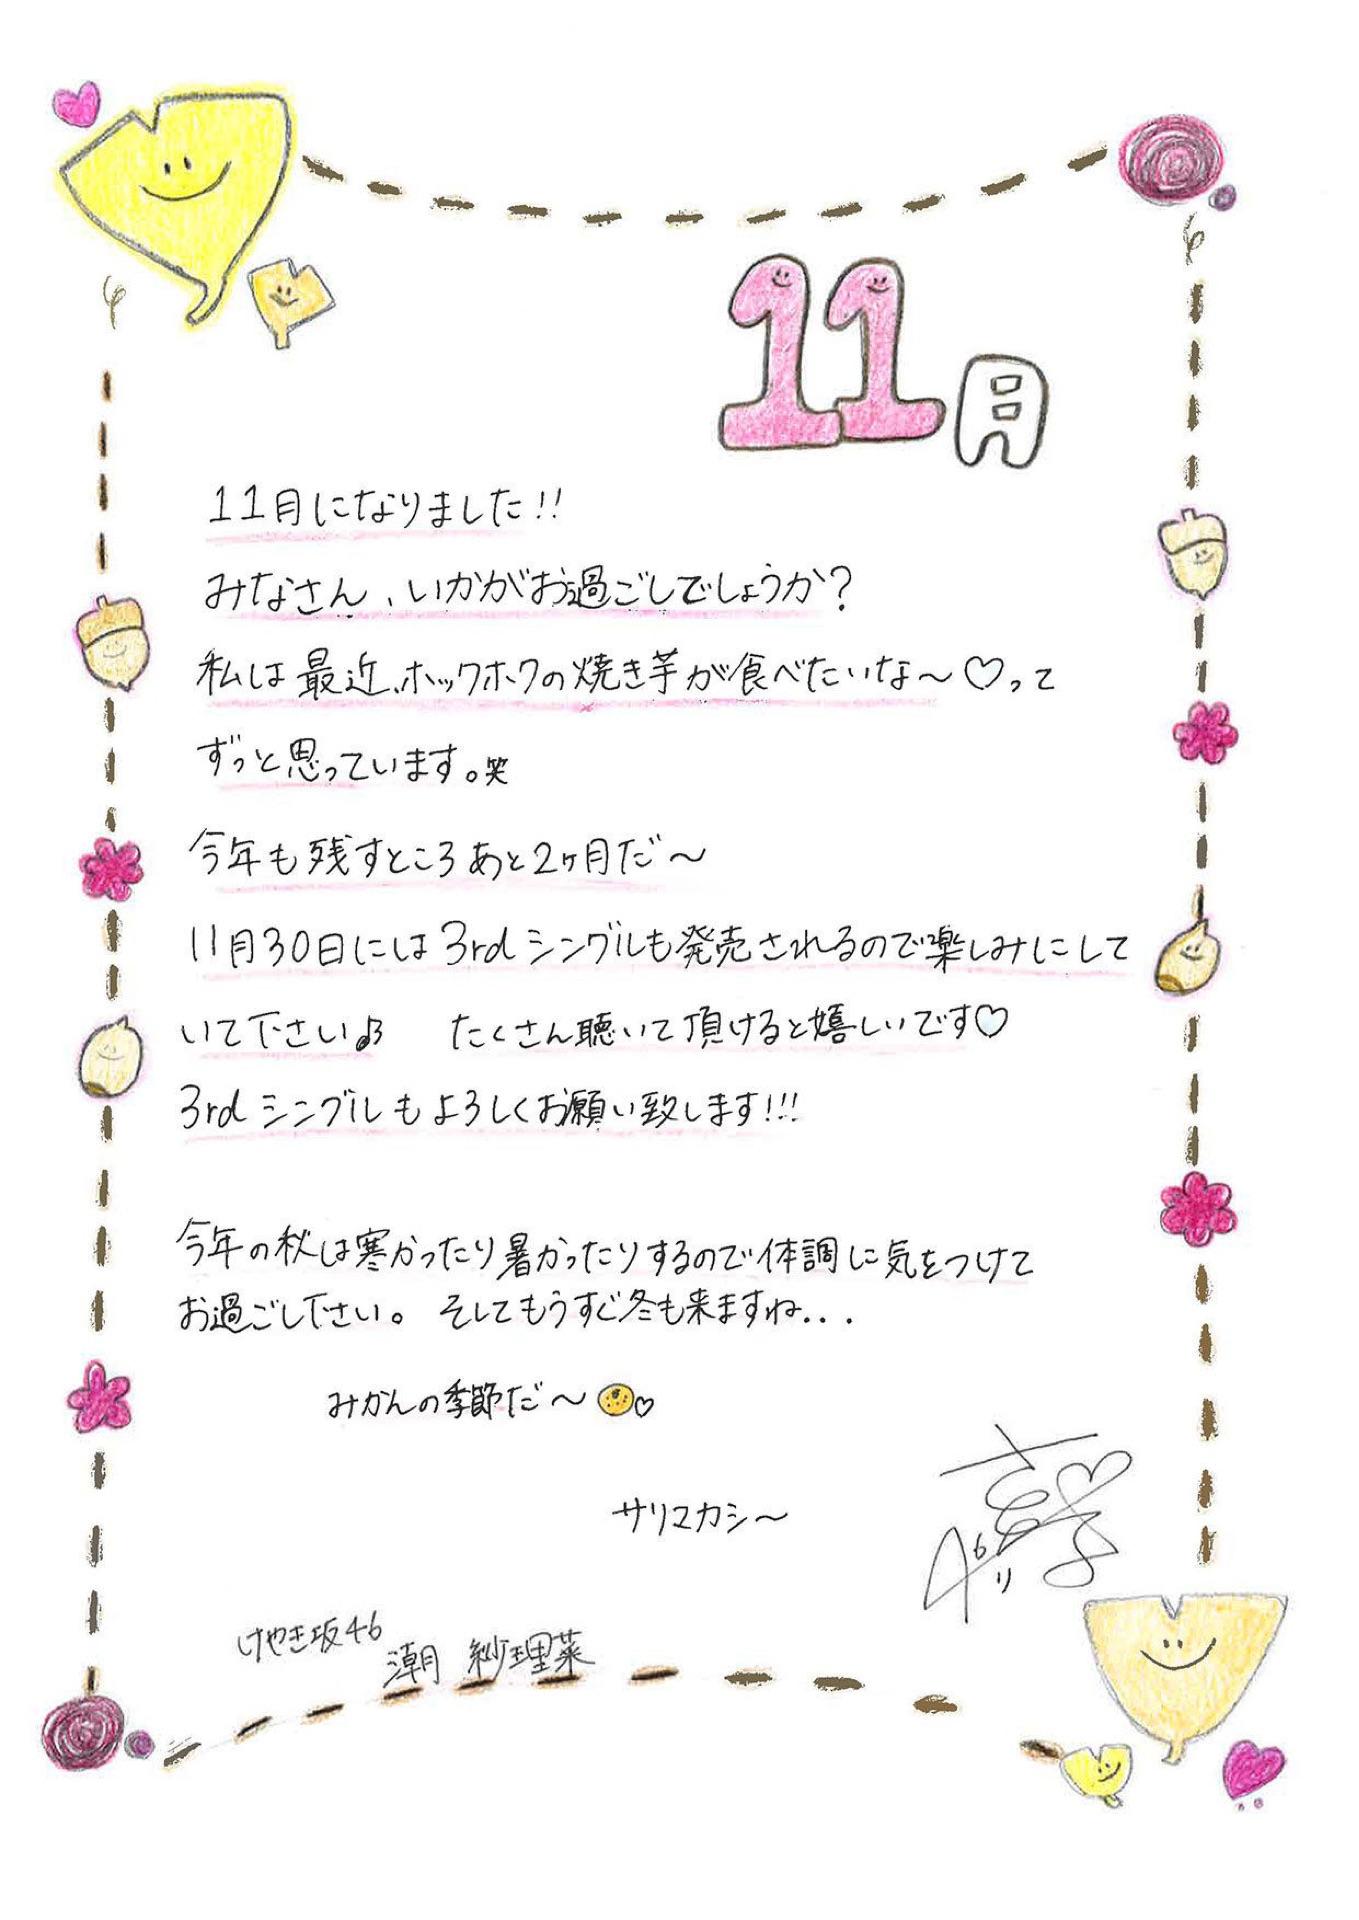 11月
11月になりました!!
みなさん、いかがお過ごしでしょうか?
私は最近、ホックホクの焼き芋が食べたいな〜♡って
ずっと思っています。笑
今年も残すところあと2ヶ月だ〜
11月30日には3rdシングルも発売されるので楽しみにして
いて下さい♪ たくさん聴いて頂けると嬉しいです♡
3rdシングルもよろしくお願い致します!!!
今年の秋は寒かったり暑かったりするので体調に気をつけて
お過ごし下さい。 そしてもうすぐ冬も来ますね...
みかんの季節だ〜
サリマカシ〜
けやき坂46
潮 紗理菜